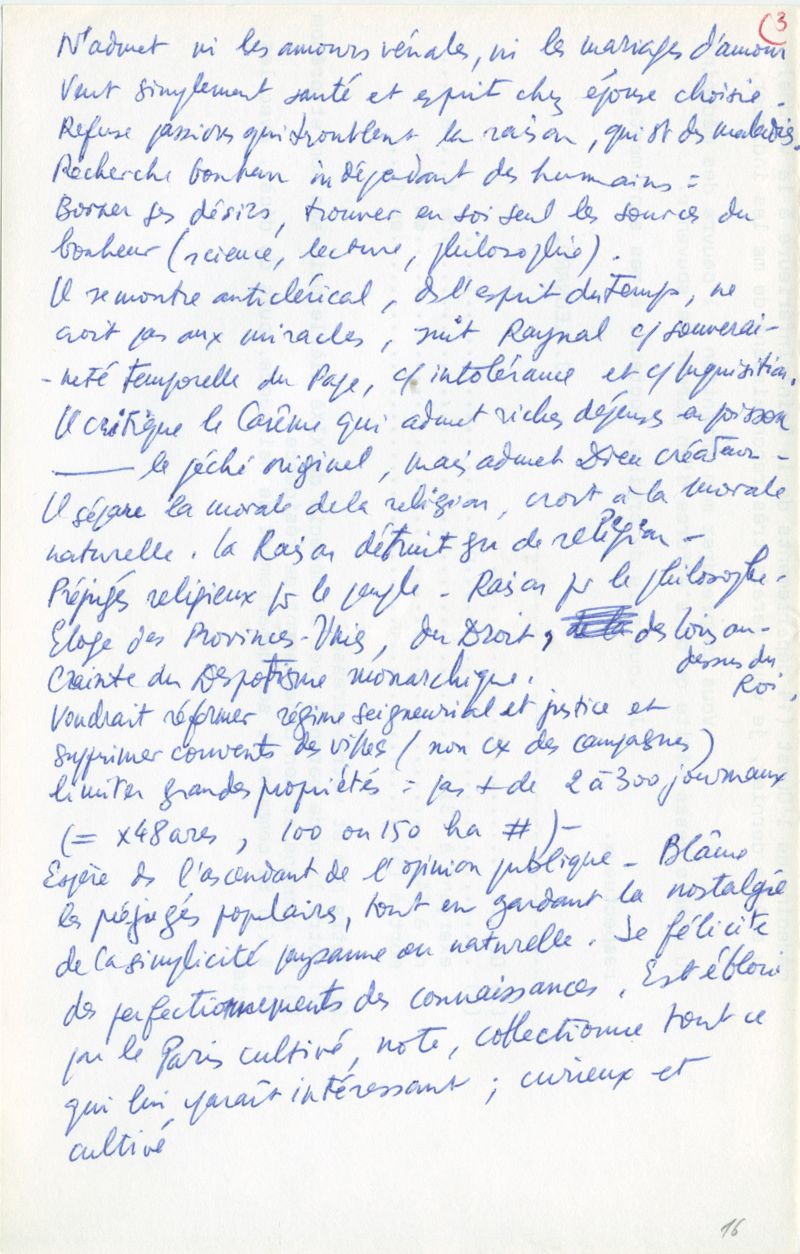 (3
N'admet ni les amours vénales, ni les mariages d'amour
Veut simplement santé et esprit chez épouse choisie.
Refuse passions qui troublent la raison, qui st des maladies.
Recherche bonheur indépendant des humains =
Borner ses désirs, trouver en soi seul les sources du
bonheur (science, lecture, philosophie).
Il se montre anticlérical, ds l'esprit du temps, ne
croit pas aux miracles, suit Raynal c/ souverai-
-neté temporelle du Pape, c/ intolérance et c/ Inquisition.
Il critique le Carême qui admet riches dépenses en poisson
——— le péché originel, mais admet Dieu créateur -
Il sépare la morale de la religion, croit à la morale
naturelle. La Raison détruit de religion -
Préjugés religieux pr le peuple - Raison pr le philosophe -
Eloge des Provinces-Unies, du Droit, des lois au-
dessus du
Roi,
Crainte du Despotisme monarchique.
Voudrait réformer régime seigneurial et justice et
supprimer couvents de villes (non cx des campagnes)
limiter grandes propriétés = pas + de 2 à 300 journaux
(= x48 ares, 100 ou 150 ha #) -
Espère ds l'ascendant de l'opinion publique - Blâme
les préjugés populaires, tout en gardant la nostalgie
de la simplicité paysanne ou naturelle. Se félicite
des perfectionnements des connaissances. Est ébloui
par le Paris cultivé, note, collectionne tout ce
qui lui paraît intéressant ; curieux et
cultivé
16